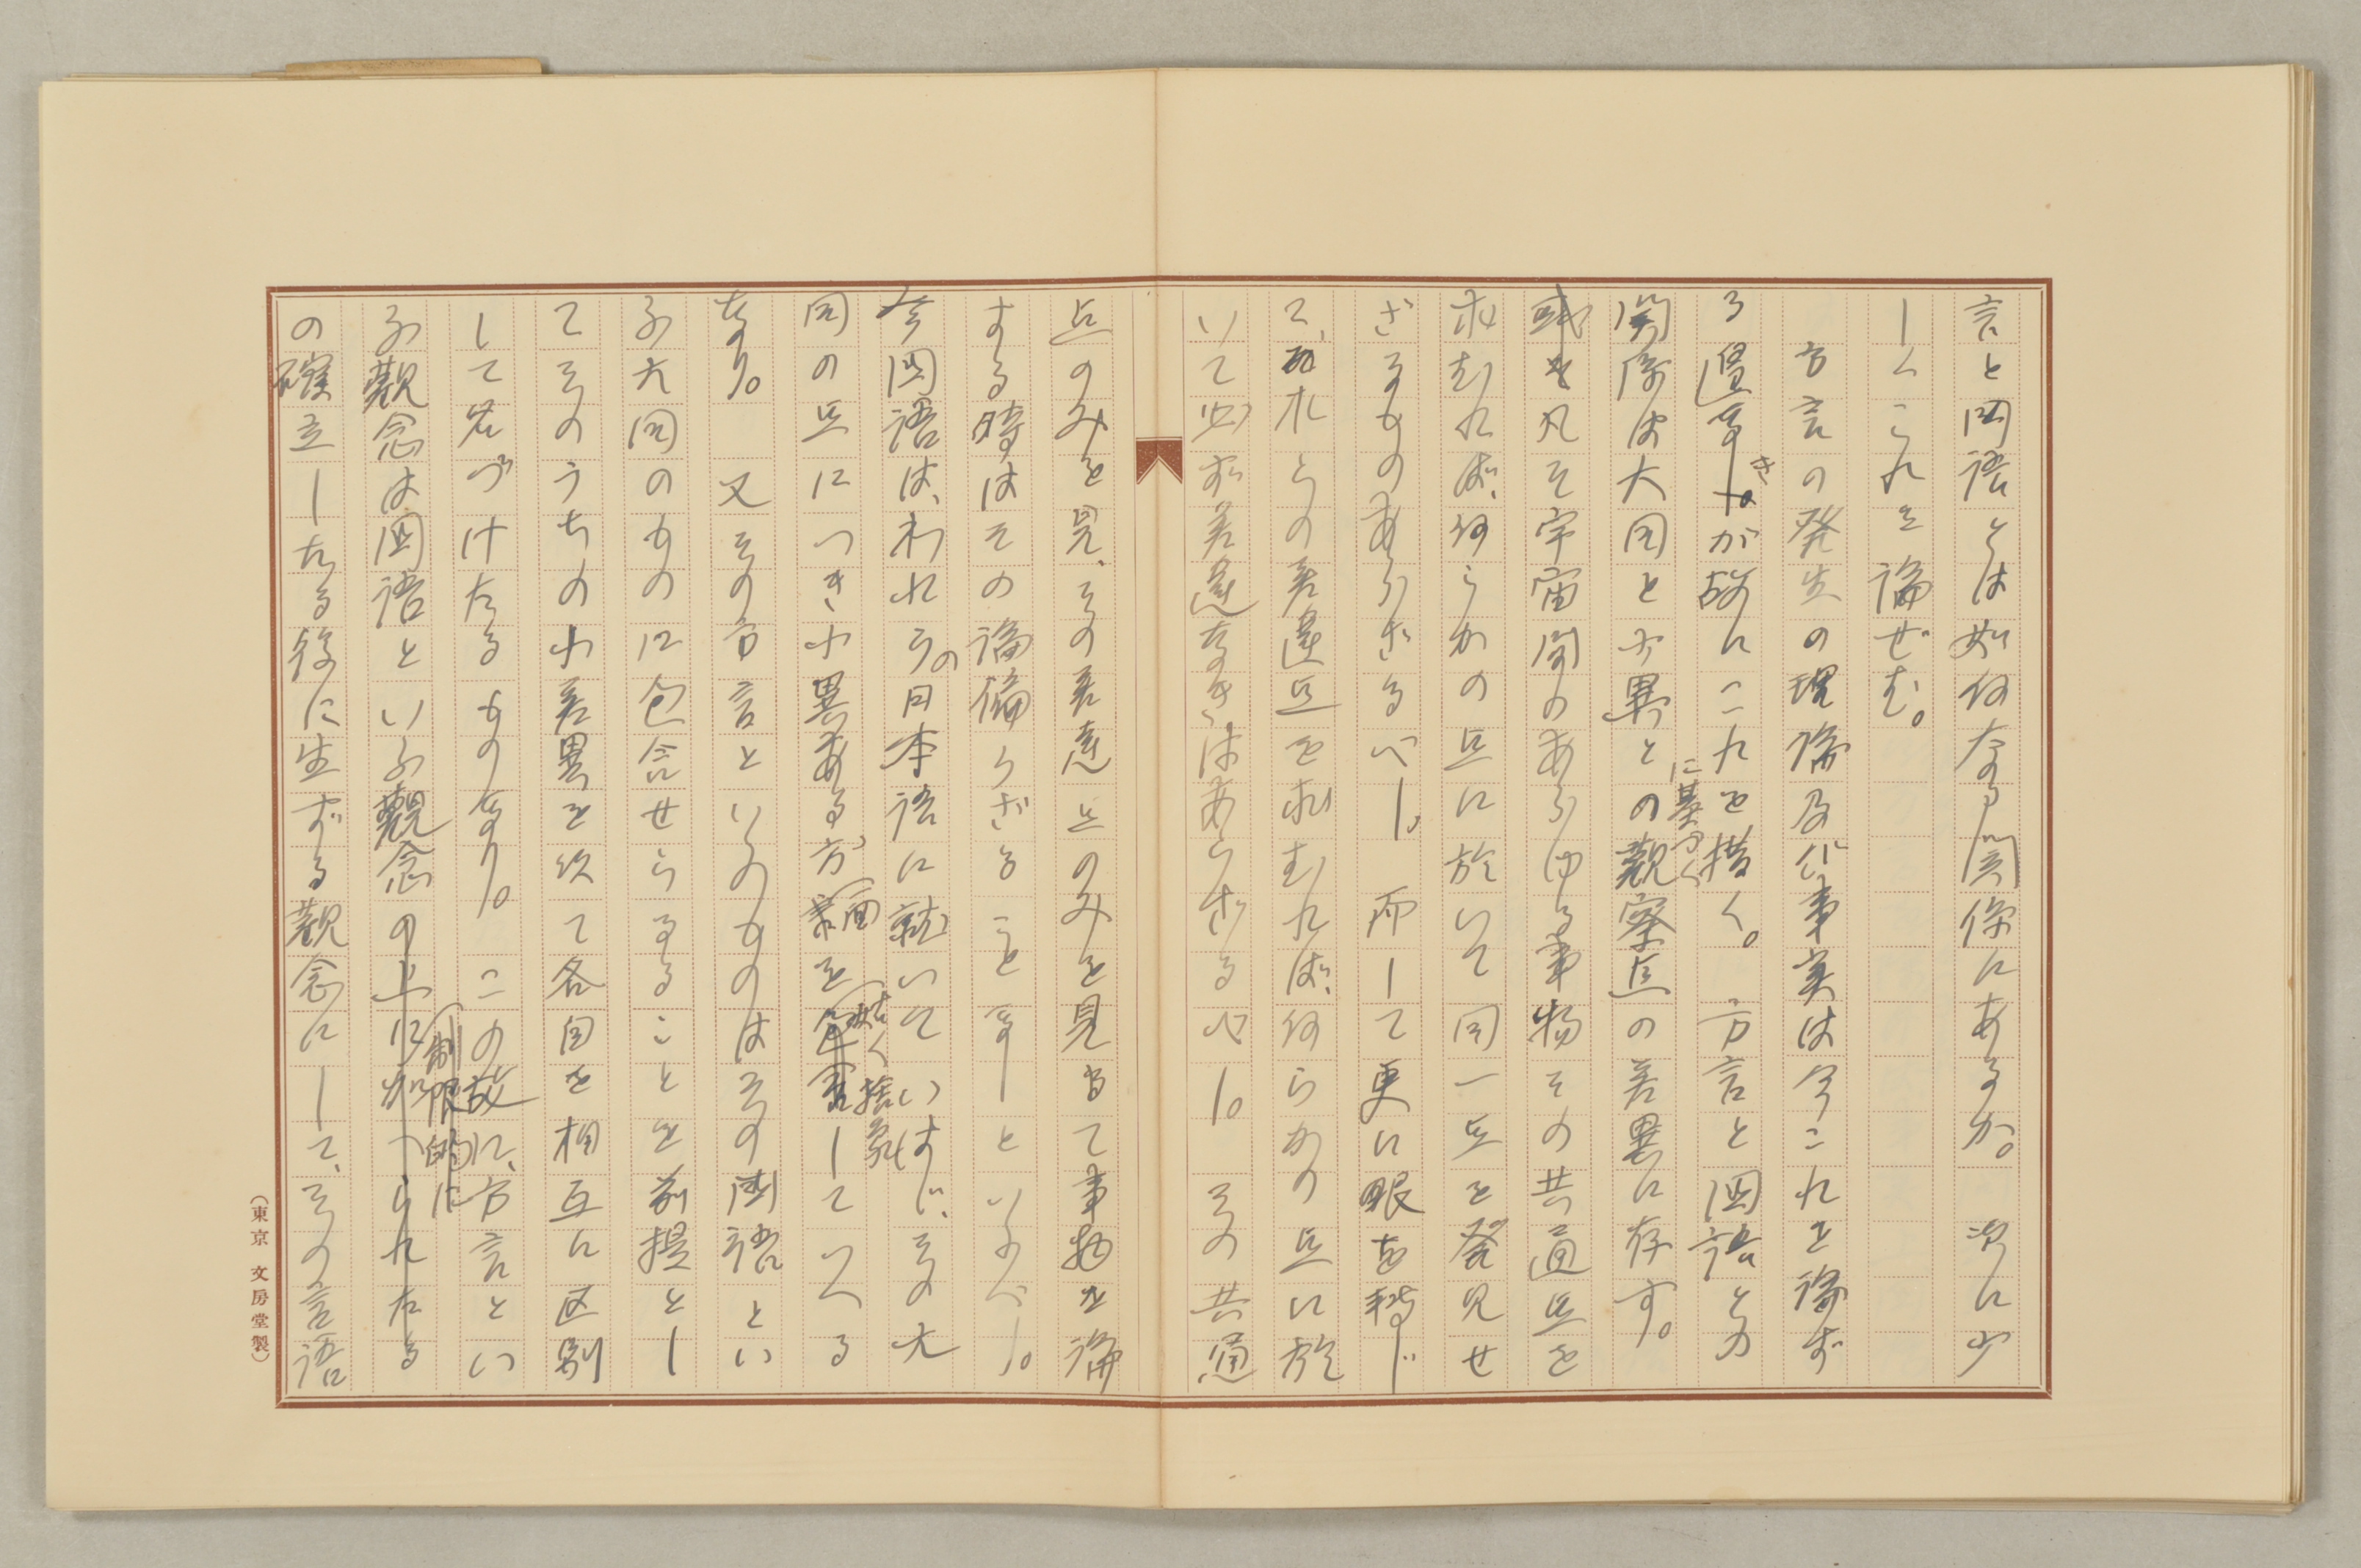 言と国語とは如何なる関係にあるか。次に少
しくこれを論ぜむ。
方言の発生の理論及び事実は今これを論ず
る遑なきが故にこれを措く。方言と国語との
関係は大同と小異との観察点の差異に存す。
に基づく
凡そ宇宙間のあらゆる事物その共通点を
求むれば、何らかの点に於いて同一点を発見せ
ざるものあらざるべし。而して更に眼を転じ
て、それらの差違点を求むれば、何らかの点に於
いて必ず差違なきはあらざるべし。その共通
点のみを見、その差違点のみを見当て事物を論
ずる時はその論偏らざることなしといふべし。
今国語は、われらの日本語に就いていはば、その大
同の点につき小異ある方面を
姑く捨象
していへる
なり。又その方言といふものはその国語とい
ふ大同のものに包含せらるることを前提とし
てそのうちの小差異を以て各自を相互に区別
して名づけたるものなり。この故に、方言とい
制限的に
ふ観念は国語といふ観念の上に
られたる
の確立したる後に生ずる観念にして、その言語
(東京 文房堂製)